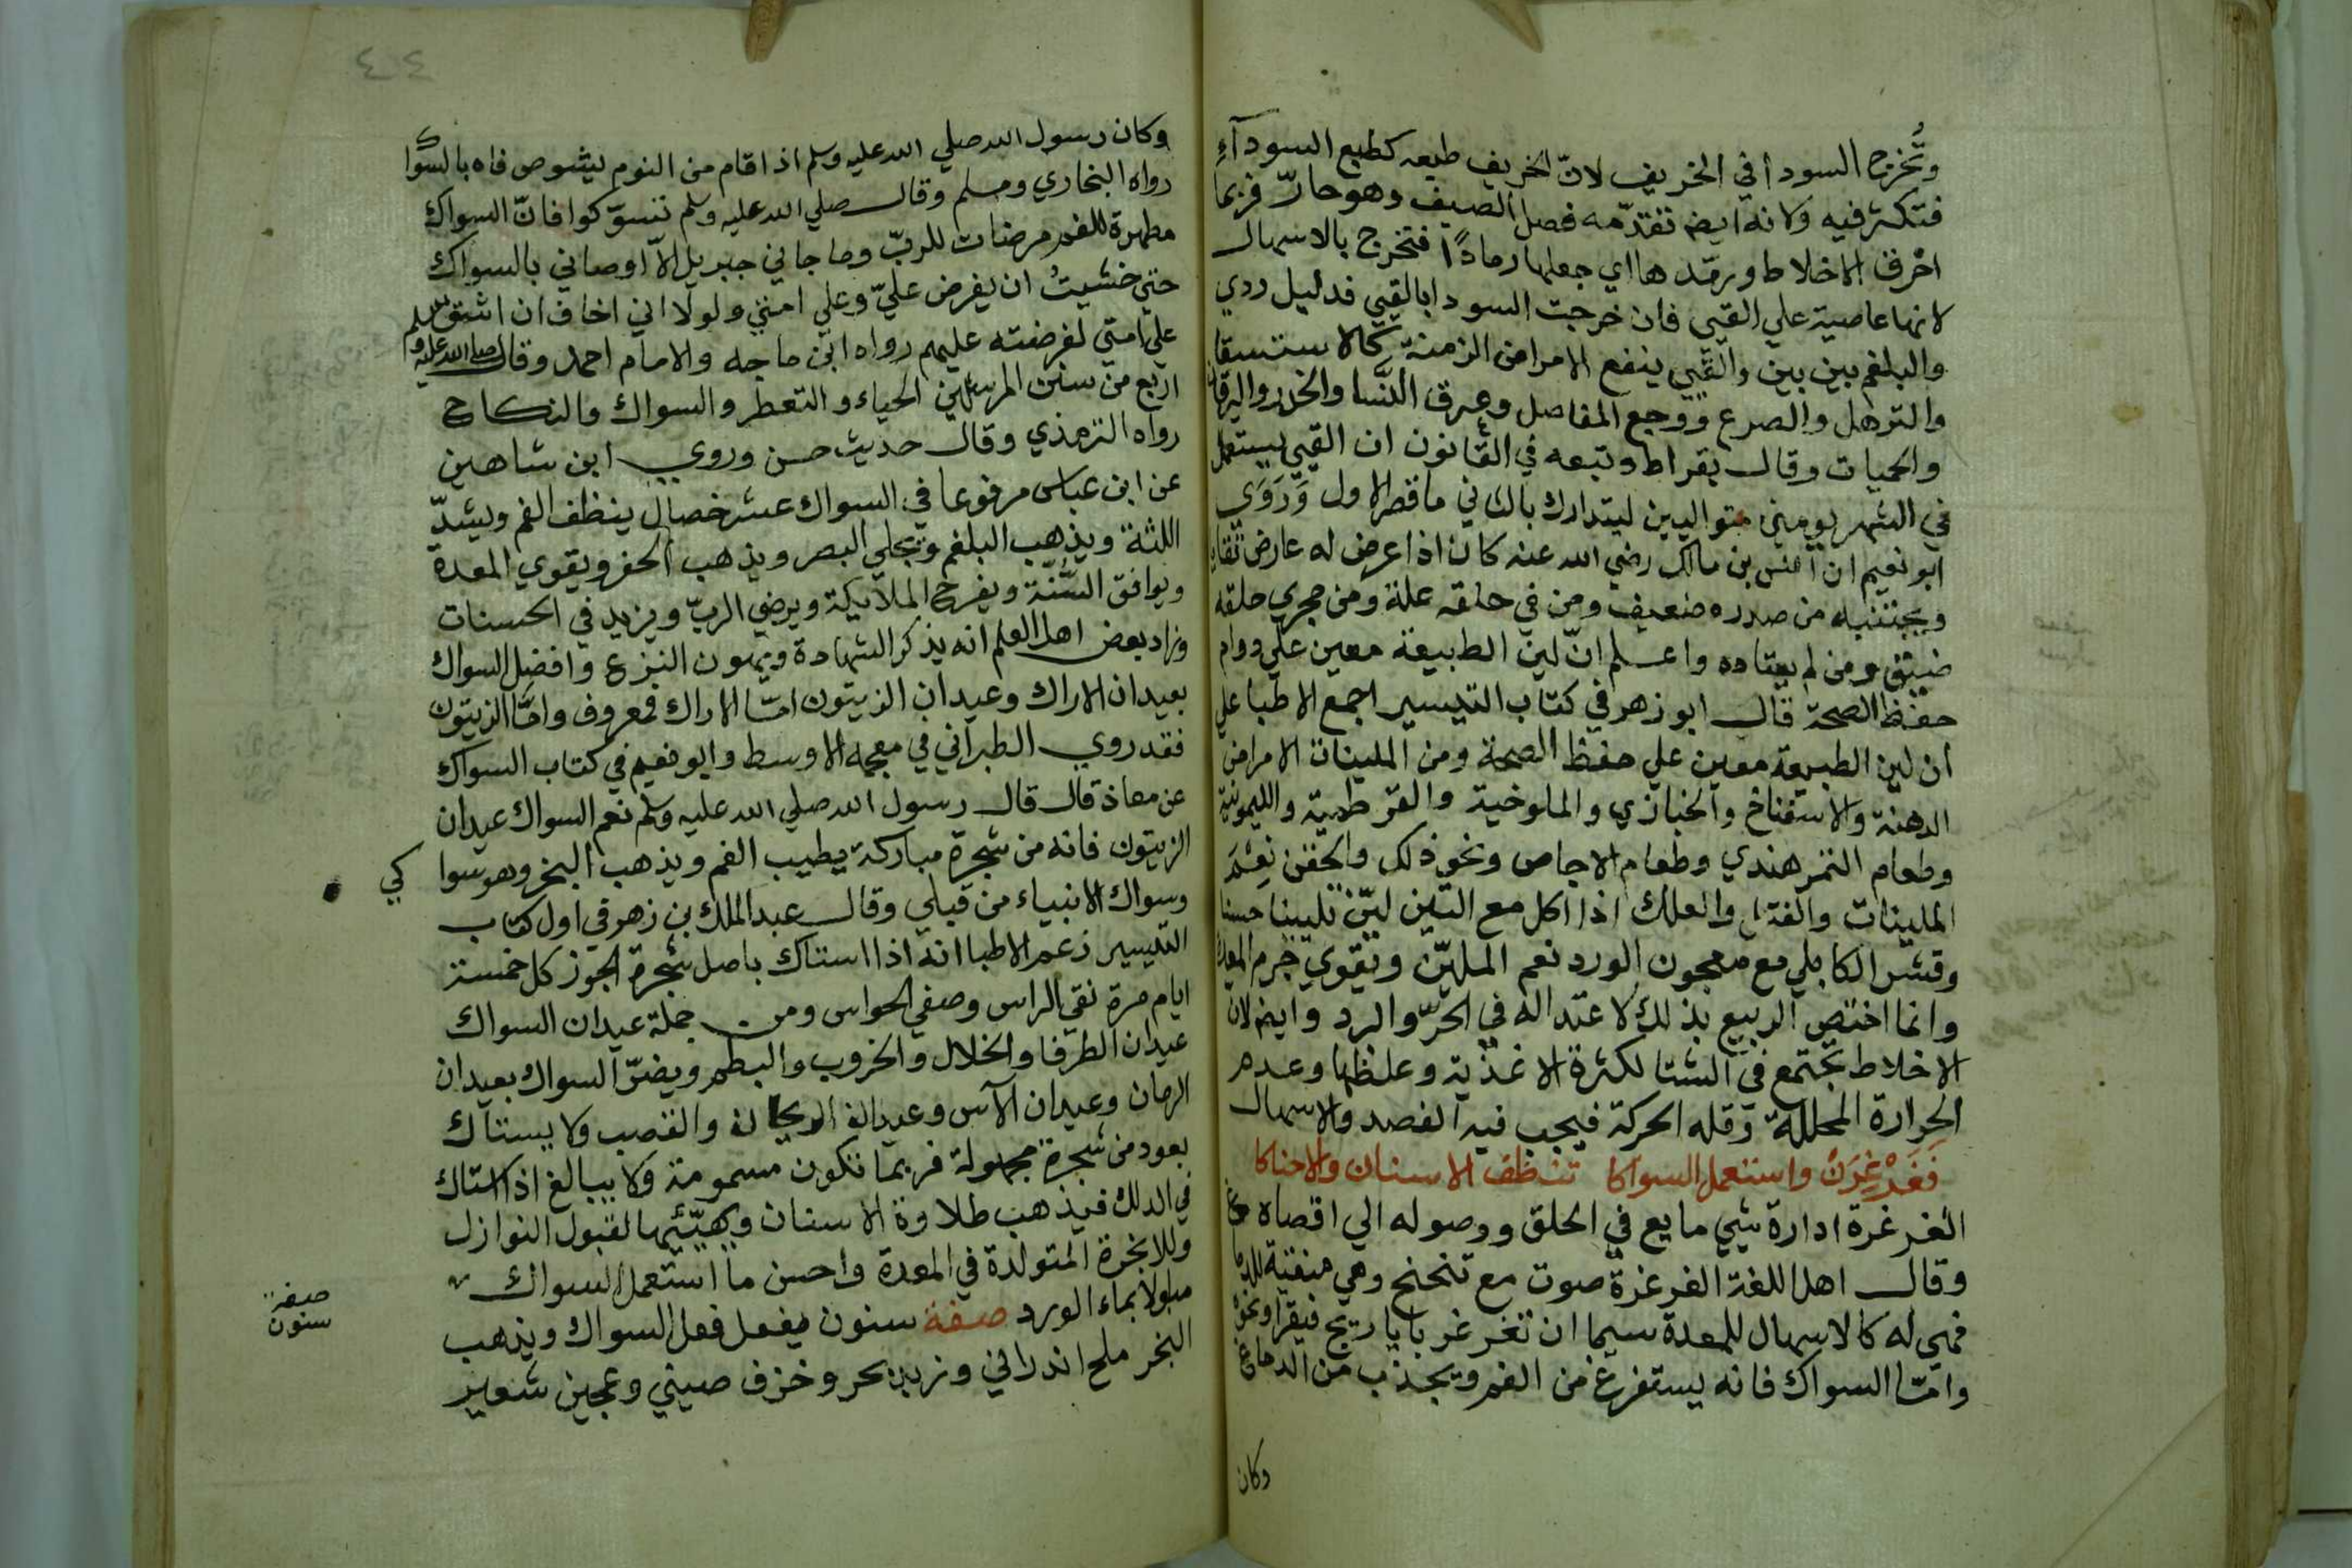 وتُخرج السودا في الخريف لانّ الخريف طبعه كطبع السودآءِ
فتكثر فيه ولانه ايضا تقدّمه فصل الصيف وهو حارّ فربما
احرق الاخلاط ورمّدها اي جعلها رمادًا فتخرج بالاسهال
لانها عاصية علي القيي فان خرجت السودا بالقيي فدليل ردي
والبلغم بين بين والقيي ينفع الامراض المزمنة كالاستسقا
والترهل والصرع ووجع المفاصل وعرق النَّسا والخدر واليرقان
والحميات وقال بقراط وتبعه في القانون ان القيي يستعمل
في الشهر يومين متواليين ليتدارك بالثاني ما قصر الاول وَرَوَي
ابو نعيم ان انس بن مالك رضي الله عنه كان اذا عرض له عارض تقايا
ويجتنبه من صدره ضعيف ومن في حلقه علة ومن مجري حلقه
ضيّق ومن لم يعتاده واعلم انّ لين الطبيعة معين علي دوام
حفظ الصحة قال ابو زهر في كتاب التيسير اجمع الاطبا علي
ان لين الطبيعة معين علي حفظ الصحة ومن الملينات الامراض
الدهنة والاسفناخ والخبازي والملوخية والقرطمية والليمونية
وطعام التمرهندي وطعام الاجاص ونحو ذلك والحقن نِعْمَ
الملينات والفتل والعلك اذا اكل مع التين ليّن تليينا حسنا
وقشر الكابلي مع معجون الورد نعم المليّن ويقوي جرم المعدة
وانما اختص الربيع بذلك لاعتداله في الحرّ والبرد وايضا لان
الاخلاط تجتمع في الشتا لكثرة الاغذية وغلظها وعدم
الحرارة المحللة وقله الحركة فيجب فيه الفصد والاسهال
فَغَرْغِرَنْ واستعمل السواكا تنظف الاسنان والاحناكا
الغرغرة ادارة شيي مايع في الحلق ووصوله الي اقصاه
وقال اهل اللغة الغرغرة صوت مع تنحنح وهي منقية للدماغ
فهي له كالاسهال للمعدة سيما ان تغرغر بايارج فيقرا ونحوه
وامّا السواك فانه يستفرغ من الفم ويجذب من الدماغ
وكان
٤٤
وكان رسول الله صلي الله عليه وسلم اذا قام من النوم ليشوص فاه بالسواك
رواه البخاري ومسلم وقال صلي الله عليه وسلم تسوّكوا فانّ السواك
مطهرة للفم مرضات للربّ وما جاني جبريل الاّ اوصاني بالسواك
حتي خشيتُ ان يفرض عليّ وعلي امتي ولولا اني اخاف ان اشق
علي امتي لفرضته عليهم رواه ابن ماجه والامام احمد وقال صلي الله عليه وسلم
اربع من سنن المرسلين الحياء والتعطر والسواك والنكاح
رواه الترمذي وقال حديث حسن وروي ابن شاهين
عن ابن عباس مرفوعا في السواك عشر خصال ينظف الفم ويشدّ
اللثة ويذهب البلغم ويجلي البصر ويذهب الحفر ويقوي المعدة
ويوافق السُّنّة ويفرح الملايكة ويرضي الربّ ويزيد في الحسنات
وزاد بعض اهل العلم انه يذكر الشهادة ويهون النزع وافضل السواك
بعيدان الاراك وعيدان الزيتون امّا الاراك فمعروف وامّا الزيتون
فقد روي الطبراني في معجمه الاوسط وابو نعيم في كتاب السواك
عن معاذ قال قال رسول الله صلي الله عليه وسلم نعم السواك عيدان
الزيتون فانه من شجرة مباركة يطيب الفم ويذهب البخر وهو سواكي
وسواك الانبياء من قبلي وقال عبد الملك بن زهر في اول كتاب
التيسير زعم الاطبا انه اذا استاك باصل شجرة الجوز كل خمسة
ايام مرة نقي الراس وصفي الحواس ومن جملة عيدان السواك
عيدان الطرفا والخلال والخروب والبطم ويضرّ السواك بعيدان
الرمان وعيدان الآس وعيدان الريحان والقصب ولا يستاك
بعود من شجرة مجهولة فربما تكون مسمومة ولا يبالغ اذا استاك
في الدلك فيذهب طلاوة الاسنان ويهيّئها لقبول النوازل
وللابخرة المتولدة في المعدة واحسن ما استعمل السواك
مبلولا بماء الورد صفة سنون يفعل فعل السواك ويذهب
البخر ملح اندراني وزبد بحر وخزف صيني وعجين شعير
صفة
سنون